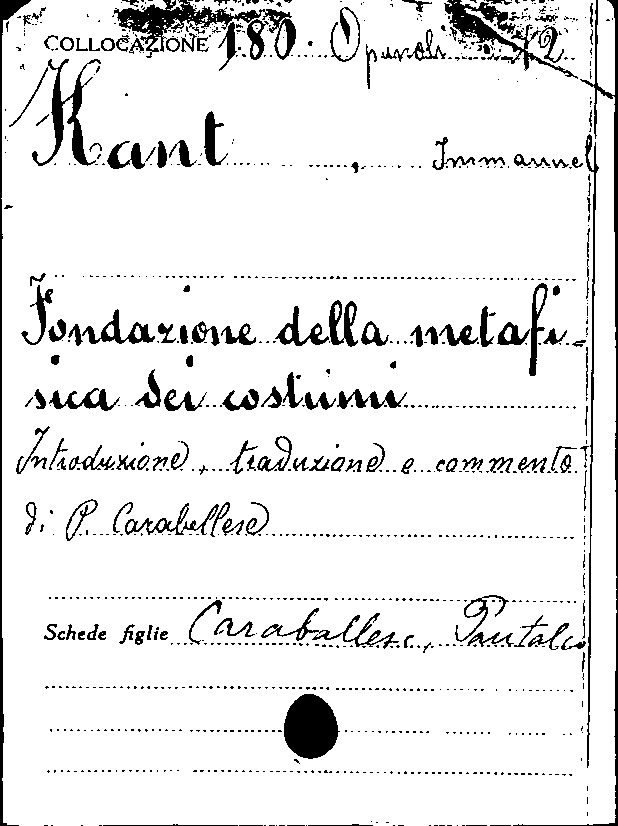 COLLOCAZIONE 180. Opuscoli 42
Kant , Immanuel
Fondazione della metafi-
sica dei costumi
Introduzione, traduzione e commento
di P. Carabellese
Schede figlie Caraballese, Pantaleo